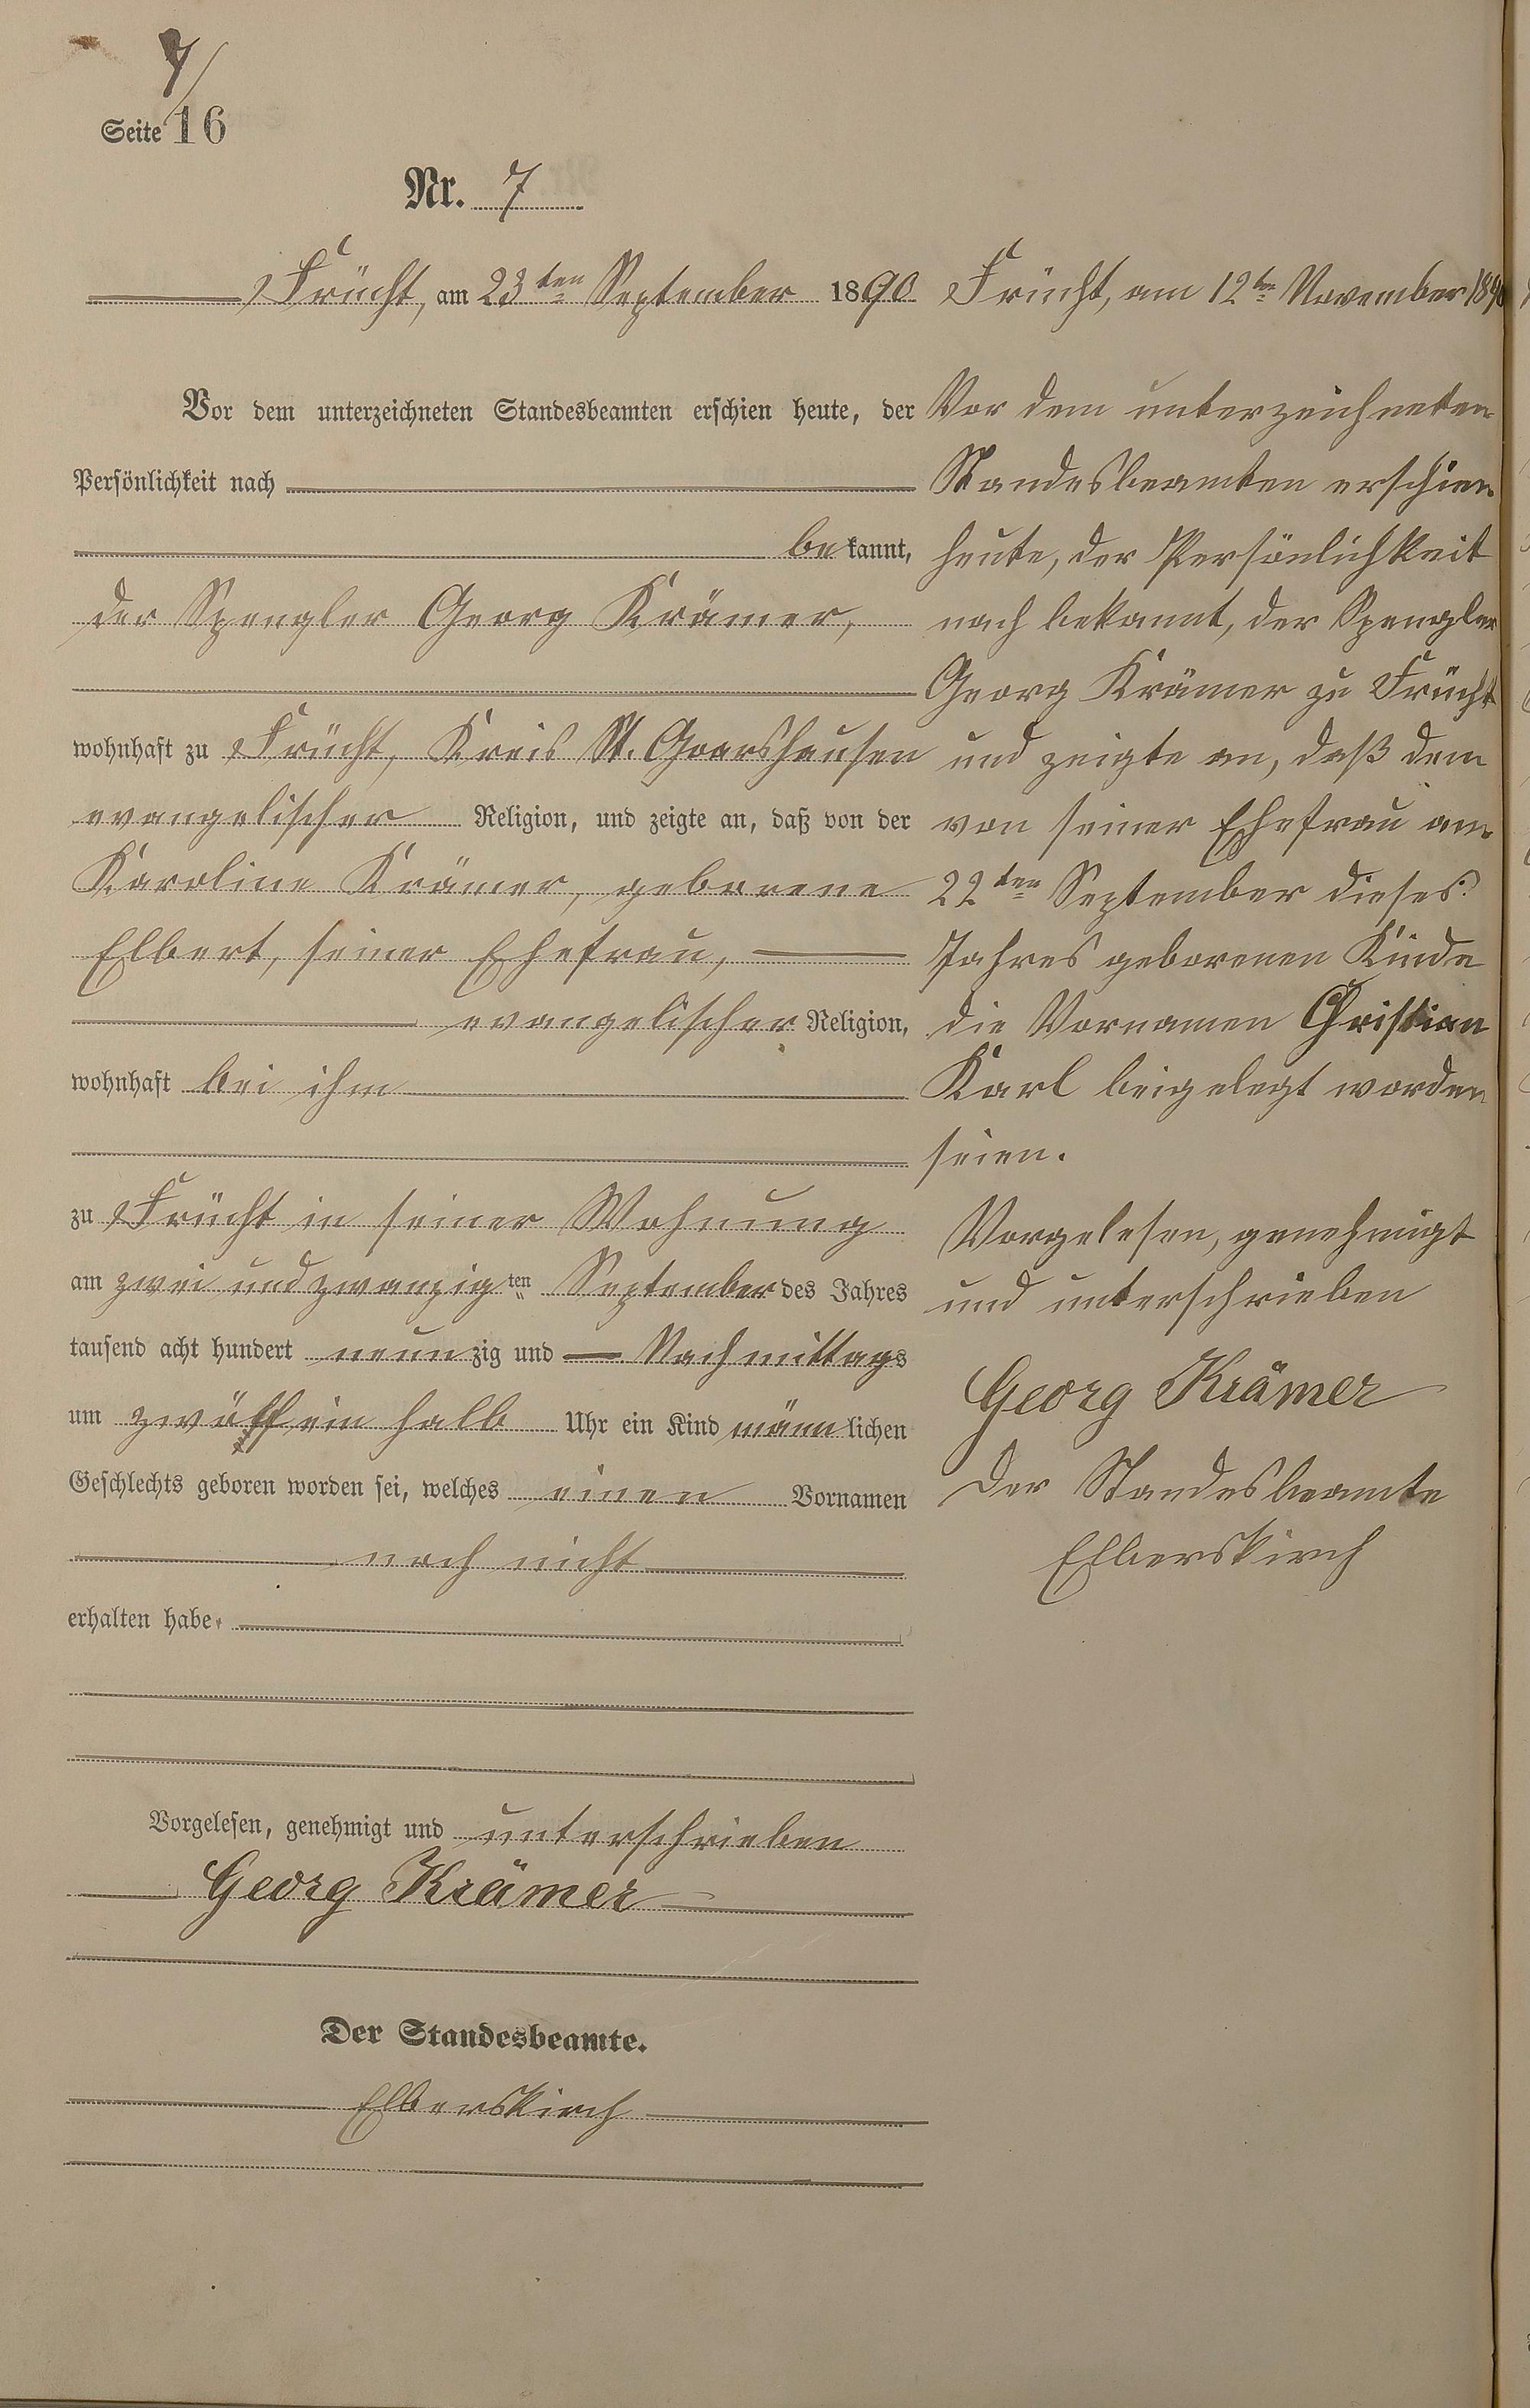 7/
Seite 16
Nr. 7
Frücht, am 23ten September 1890
Vor dem unterzeichneten Standesbeamten erschien heute, der
Persönlichkeit nach
bekannt,
der Spengler Georg Krämer,
wohnhaft zu Frücht, Kreis St. Goarshausen
evangelischer Religion, und zeigte an, daß von der
Karoline Krämer, geborene
Elbert, seiner Ehefrau,
evangelischer Religion,
wohnhaft bei ihm
zu Frücht in seiner Wohnung
am zwei und zwanzigten September des Jahres
tausend acht hundert neunzig und — Nachmittags
um zwölf ein halb Uhr ein Kind männlichen
Geschlechts geboren worden sei, welches einen Vornamen
noch nicht
erhalten habe.
Vorgelesen, genehmigt und unterschrieben
Georg Krämer
Der Standesbeamte.
Elberskirch
Frücht, am 12ten November 1890
Vor dem unterzeichneten
Standesbeamten erschien
heute, der Persönlichkeit
nach bekannt, der Spengler
Georg Krämer zu Frücht
und zeigte an, daß dem
von seiner Ehefrau am
22ten September dieses
Jahres geborenen Kinde
die Vornamen Christian
Karl beigelegt worden
seien.
Vorgelesen, genehmigt
und unterschrieben
Georg Krämer
Der Standesbeamte
Elberskirch